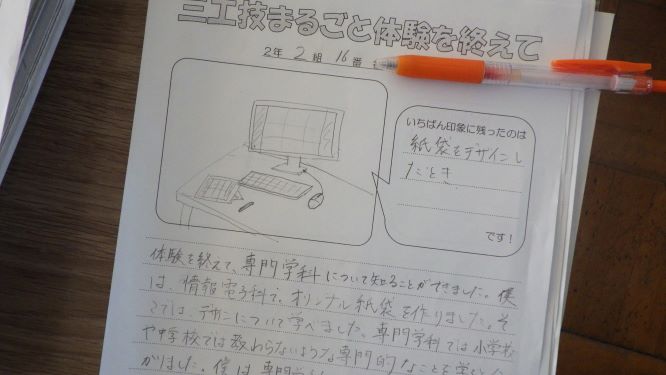 三工技まるごと体験を終えて
2年 2組 16番
いちばん印象に残ったのは
紙袋をデザインし
たこと
です!
体験を終えて、専門学科について知ることができました。僕
は、情報電子科で、オリジナル紙袋を作りました。そ
こでは、デザインについて学べました。専門学科では小学校
や中学校では教わらないような専門的なことを学
がりました。僕は専門